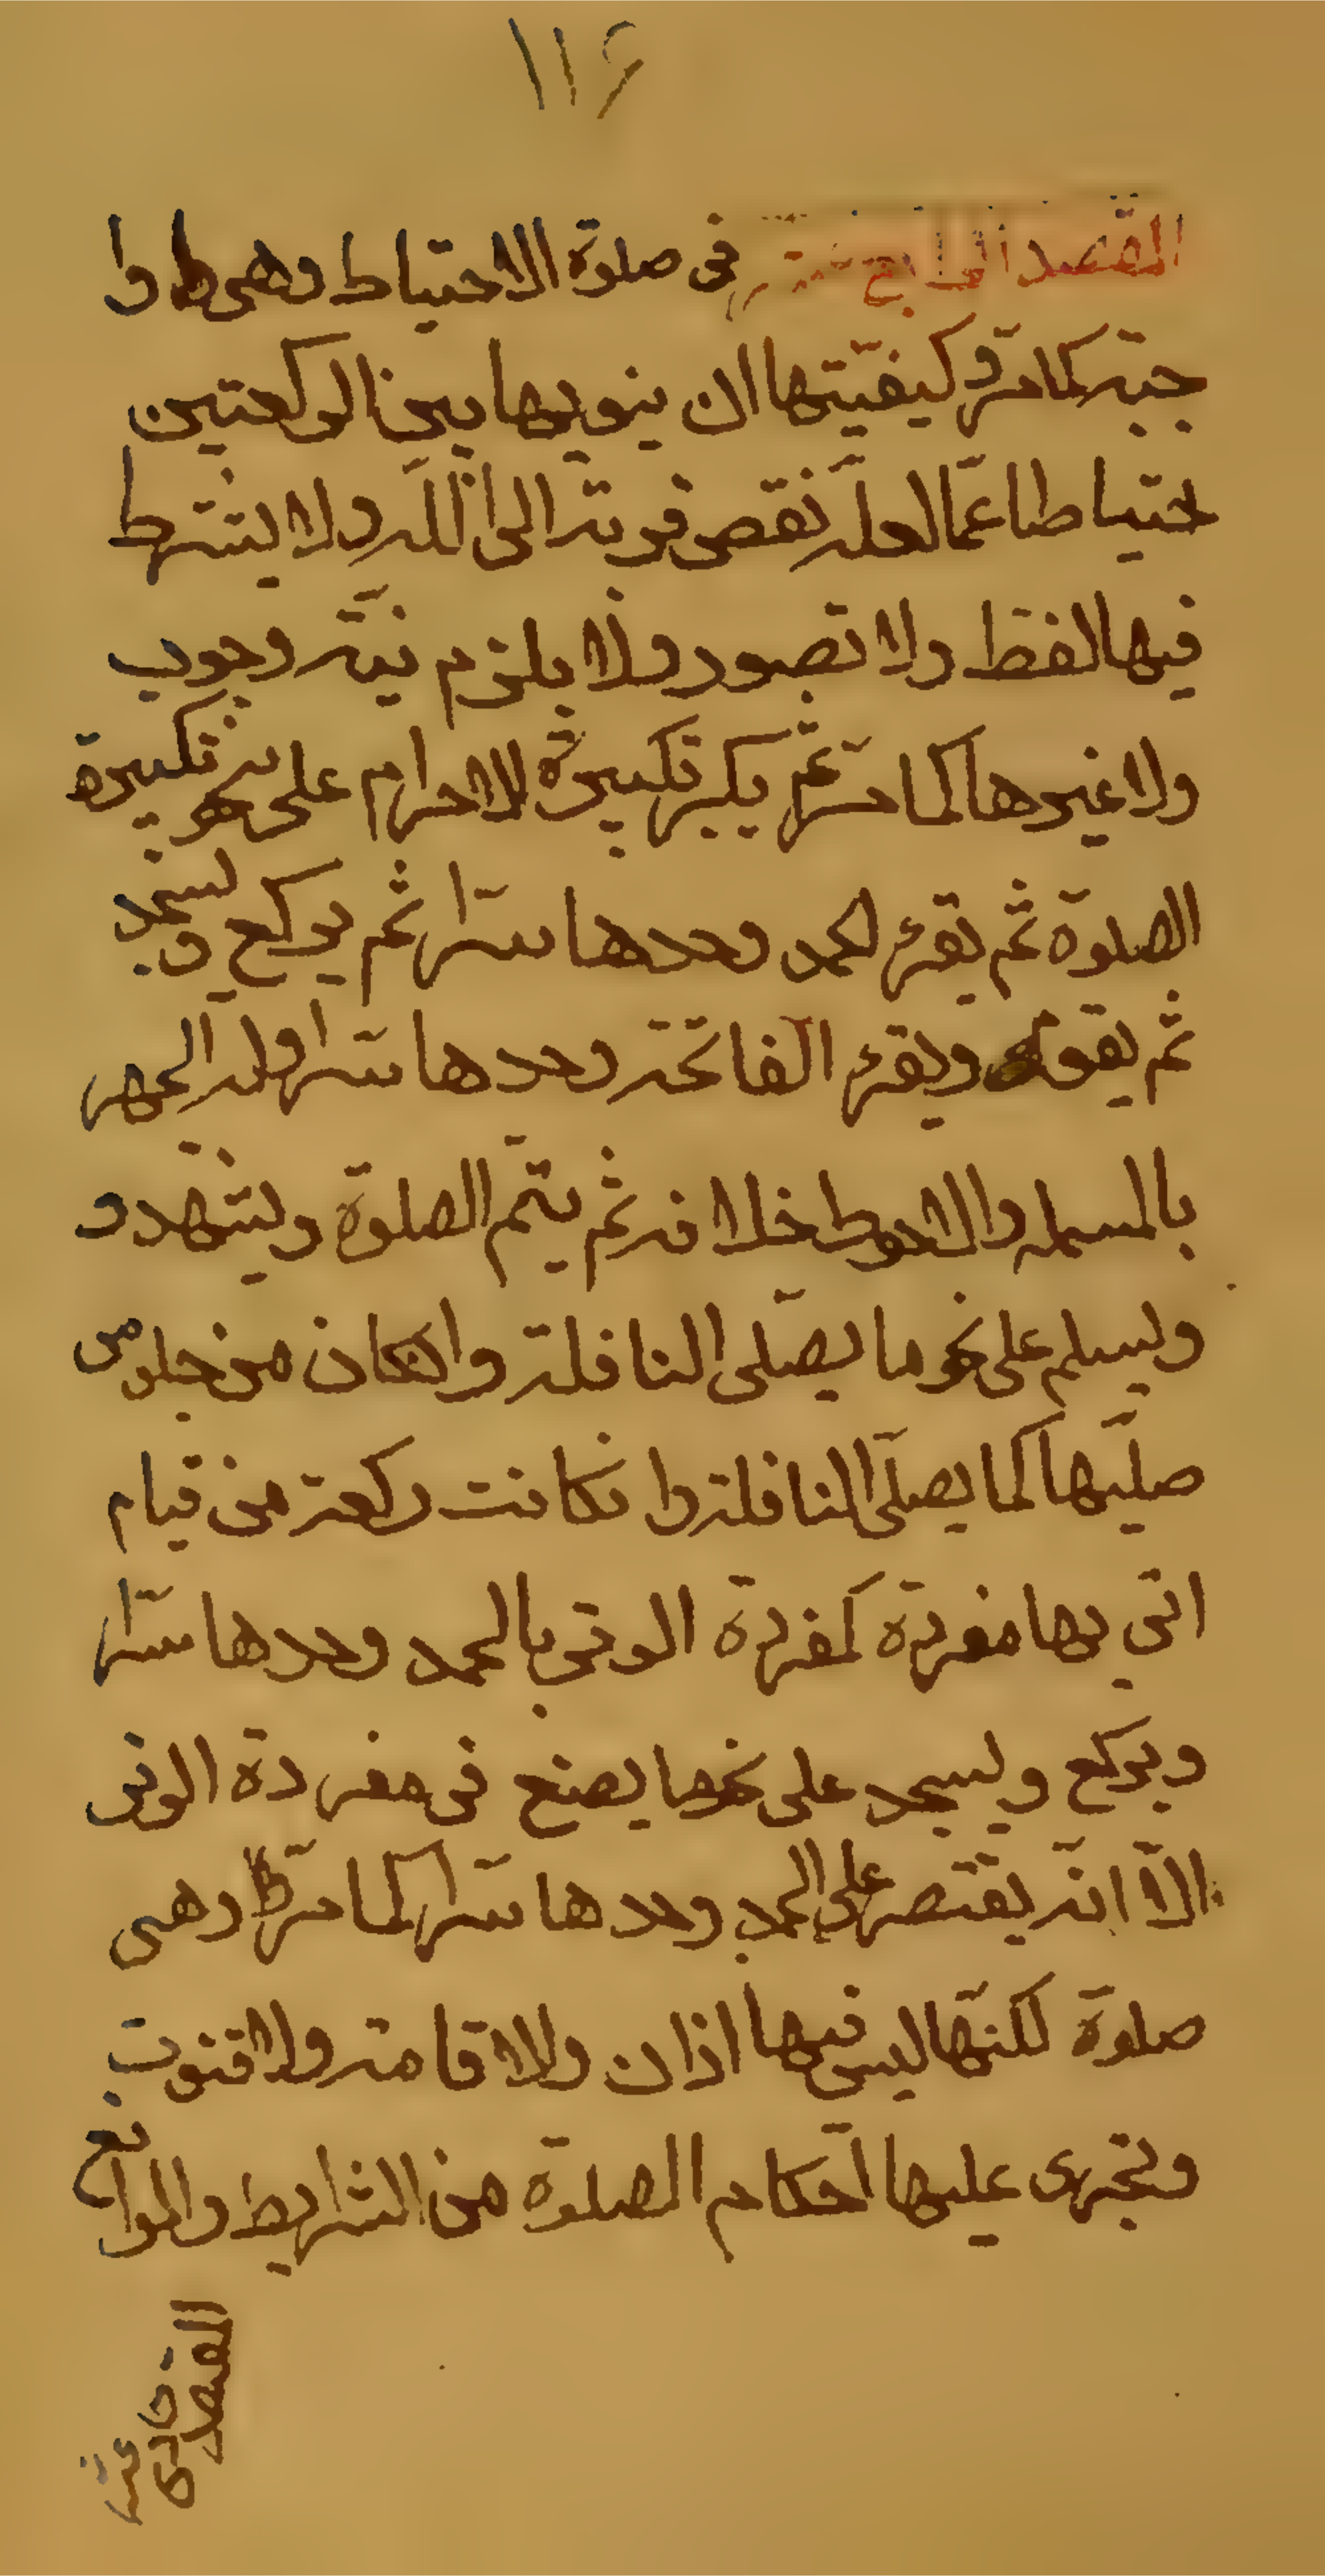 ١١٦
المقصد الرابع عشر في صلوة الاحتياط وهى وا
جبة كما مر وكيفيتها ان ينويها بين الركعتين
احتياطا عما لعله نقص قربة الى الله ولا يشترط
فيها لفظ ولا تصور ولا يلزم نية وجوب
ولا غيرها كما مر ثم يكبر تكبيرة الاحرام على نحو تكبيرة
الصلوة ثم يقرء الحمد وحدها سرا ثم يركع ويسجد
ثم يقوم ويقرء الفاتحة وحدها سرا وله الجهر
بالبسملة والاحوط خلافه ثم يتم الصلوة ويتشهد و
ويسلم على نحو ما يصلى النافلة وان كان من جلوس
صليها كما يصلى النافلة وان كانت ركعة من قيام
اتي بها مفردة كمفردة الوتر بالحمد وحدها سرا
ويركع ويسجد على نحو ما يصنع في مفردة الوتر
الا انه يقتصر على الحمد وحدها سرا كما مر وهي
صلوة لكنها ليس فيها اذان ولا اقامة ولا قنوت
وتجرى عليها احكام الصلوة من الشرايط والموانع
المقصد
عشر